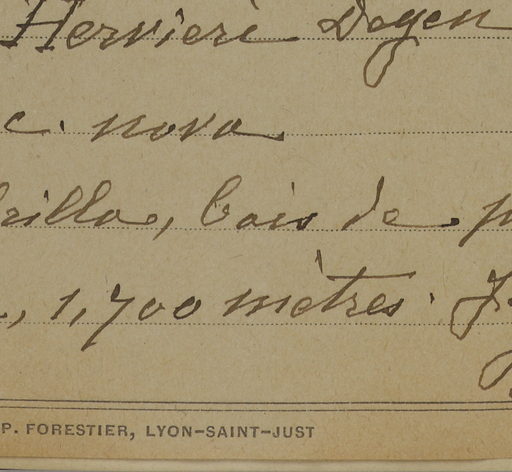 Hervieri Degen
c. nova
rilla, bois de
, 1,700 mètres.
P. FORESTIER, LYON-SAINT-JUST